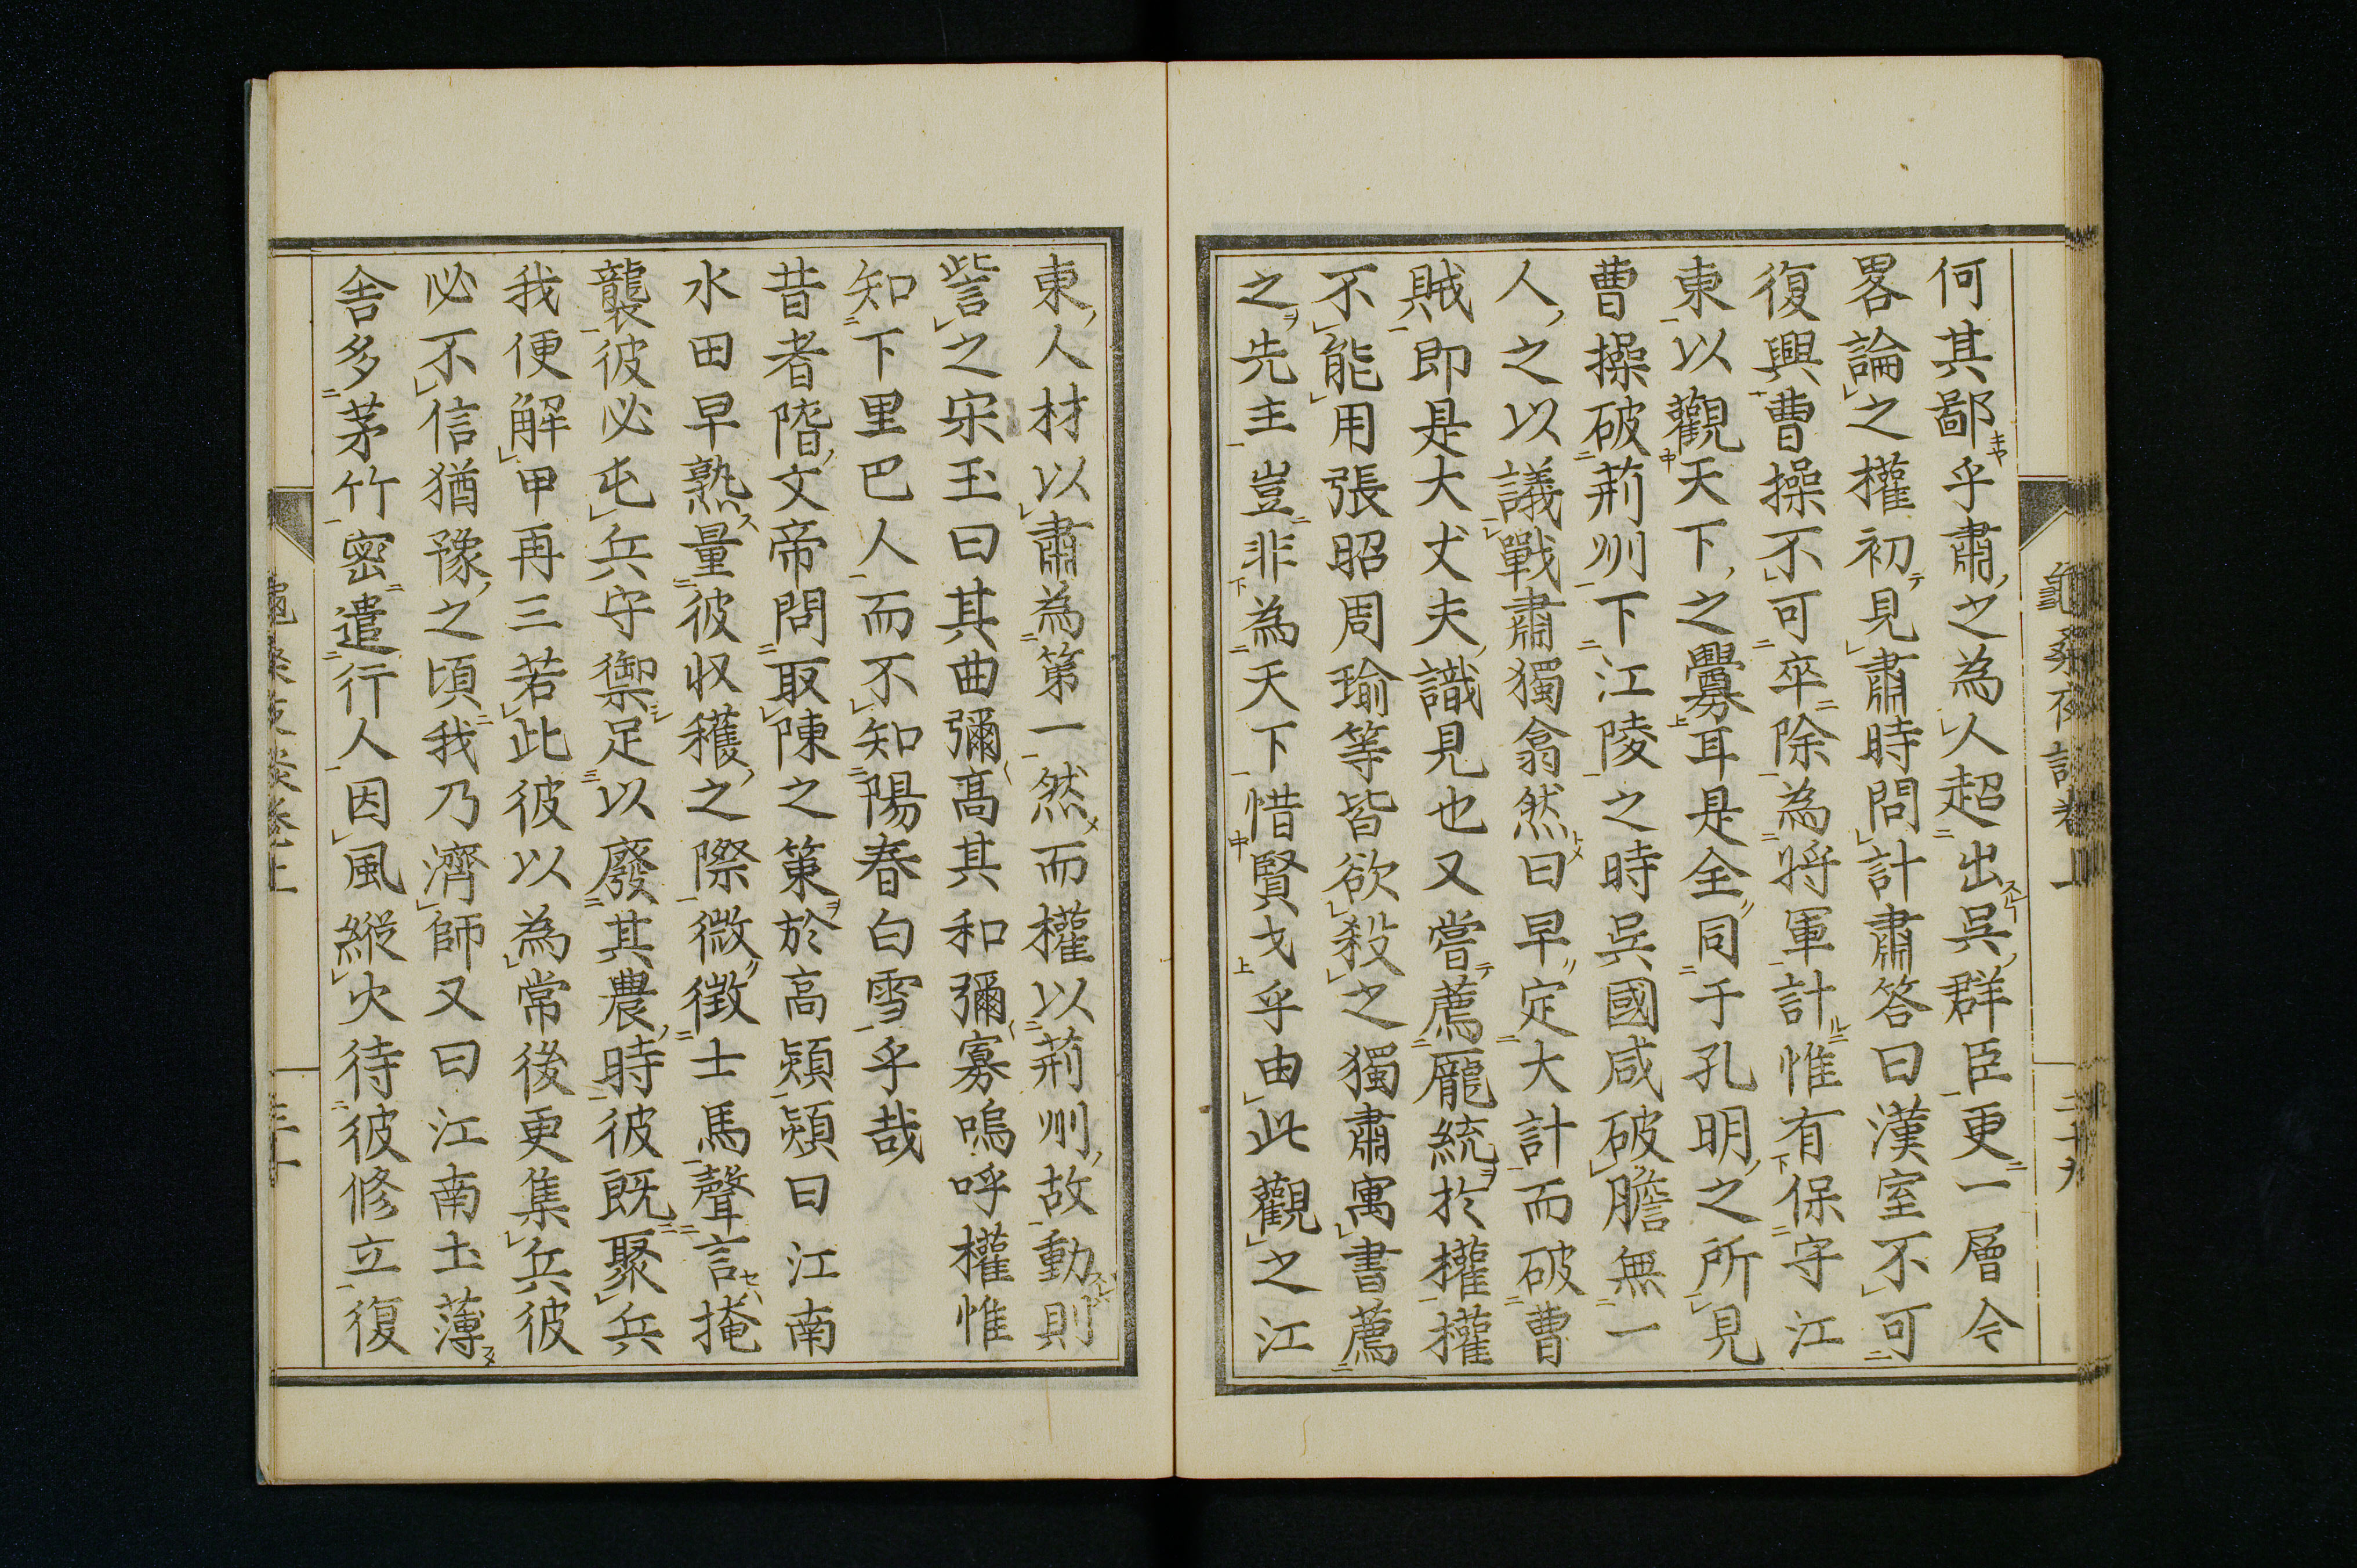 何其鄙乎肅之為人超出吳群臣更一層今
畧論之權初見肅時問計肅答曰漢室不可
復興曹操不可卒除為將軍計惟有保守江
東以觀天下之釁耳是全同于孔明之所見
曹操破荊州下江陵之時吳國咸破膽無一
人之以議戰肅獨翕然曰早定大計而破曹
賊即是大丈夫識見也又嘗薦龐統於權權
不能用張昭周瑜等皆欲殺之獨肅寓書薦
之先主豈非為天下惜賢才乎由此觀之江
東人材以肅為第一然而權以荊州故動則
訾之宋玉曰其曲彌高其和彌寡嗚呼權惟
知下里巴人而不知陽春白雪乎哉
昔者隋文帝問取陳之策於高熲熲曰江南
水田早熟量彼收穫之際微徵士馬聲言掩
襲彼必屯兵守禦足以廢其農時彼既聚兵
我便解甲再三若此彼以為常後更集兵彼
必不信猶豫之頃我乃濟師又曰江南土薄
舍多茅竹密遣行人因風縱火待彼修立復